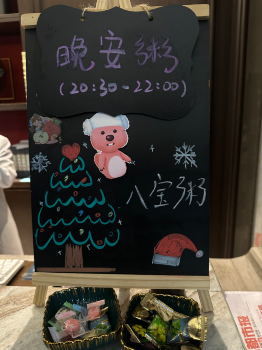 晚安粥
(20:30-22:00)
八宝粥